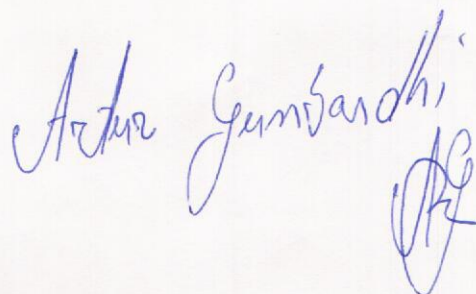 Artur Gumbardhi
AG